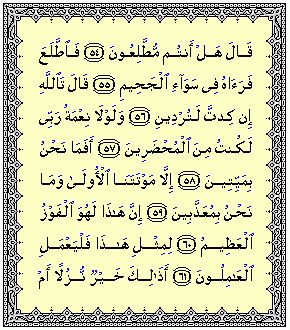 قَالَ هَلْ أَنتُم مُّطَّلِعُونَ ﴿٥٤﴾ فَٱطَّلَعَ
فَرَءَاهُ فِى سَوَآءِ ٱلْجَحِيمِ ﴿٥٥﴾ قَالَ تَٱللَّهِ
إِن كِدتَّ لَتُرْدِينِ ﴿٥٦﴾ وَلَوْلَا نِعْمَةُ رَبِّى
لَكُنتُ مِنَ ٱلْمُحْضَرِينَ ﴿٥٧﴾ أَفَمَا نَحْنُ
بِمَيِّتِينَ ﴿٥٨﴾ إِلَّا مَوْتَتَنَا ٱلْأُولَىٰ وَمَا
نَحْنُ بِمُعَذَّبِينَ ﴿٥٩﴾ إِنَّ هَٰذَا لَهُوَ ٱلْفَوْزُ
ٱلْعَظِيمُ ﴿٦٠﴾ لِمِثْلِ هَٰذَا فَلْيَعْمَلِ
ٱلْعَٰمِلُونَ ﴿٦١﴾ أَذَٰلِكَ خَيْرٌ نُّزُلًا أَمْ